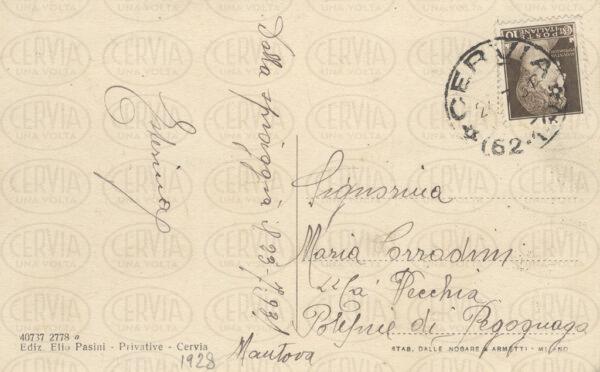 Dalla spiaggia il 23-7-931
Esterina
10
POSTE
ITALIANE
CERVIA
(62-
Signorina
Maria Corradini
Cà Vecchia
di Pegognaga
Mantova
40737 2778
Ediz. Elio Pasini - Privative - Cervia
1928
STAB. DALLE NOGARE & ARMETTI - MILANO
CERVIA
UNA VOLTA